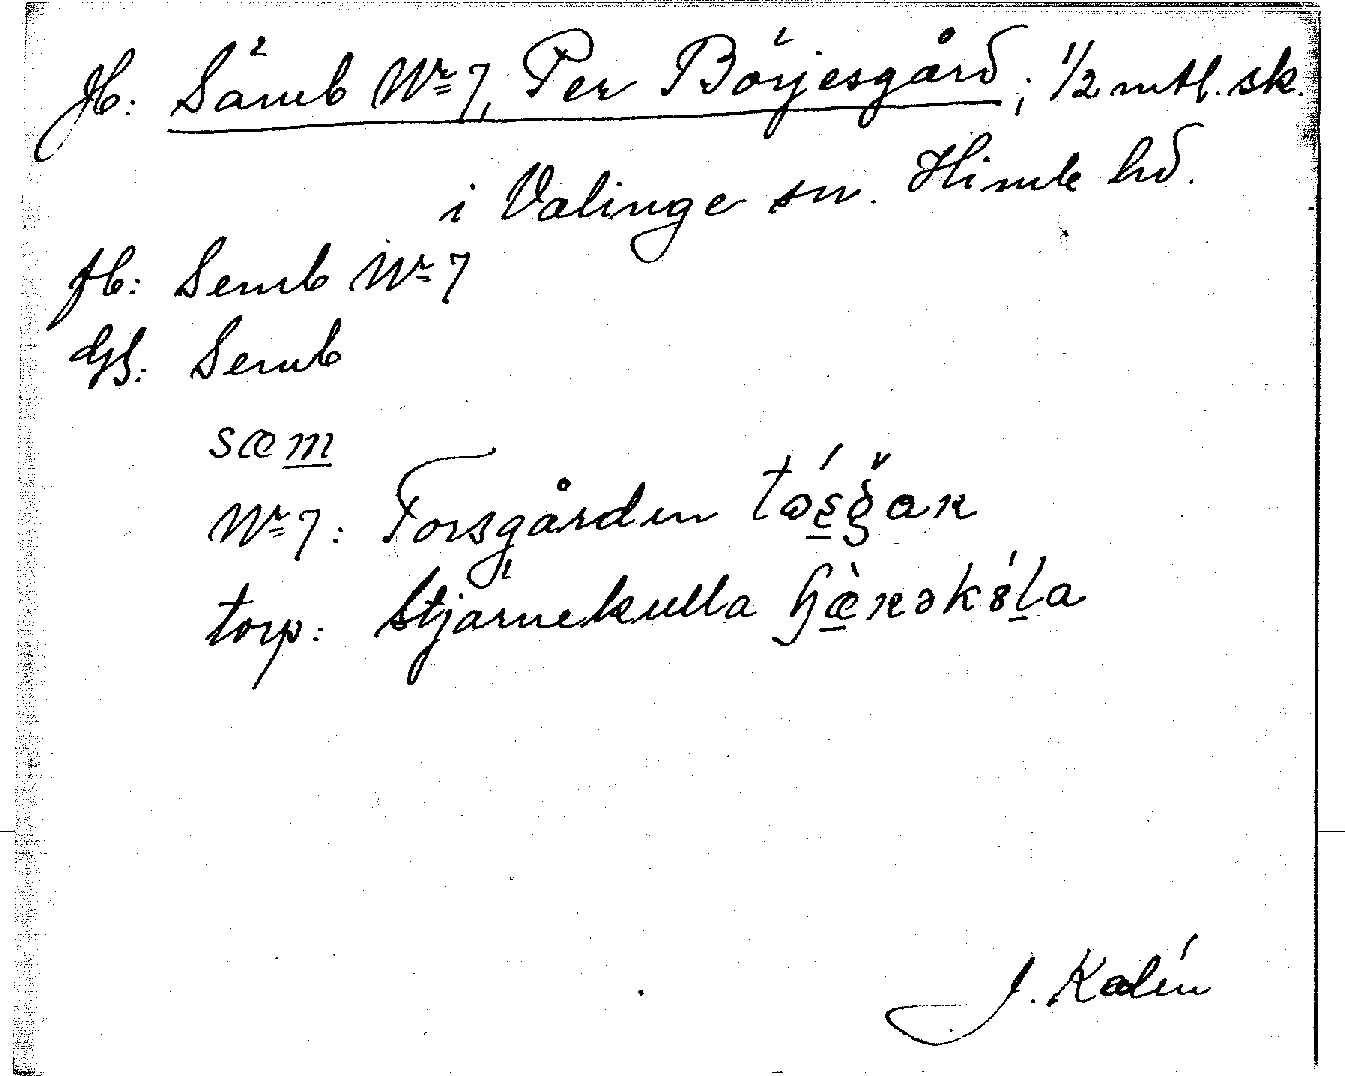 Jb: Sämb Nr 7, Per Börjesgård; 1/2 mtl. sk.
i Valinge sn. Himle hd.
Jb: Semb Nr 7
GS: Semb
sæm
Nr 7: Forsgården
torp: Stjärnekulla
J. Kalén